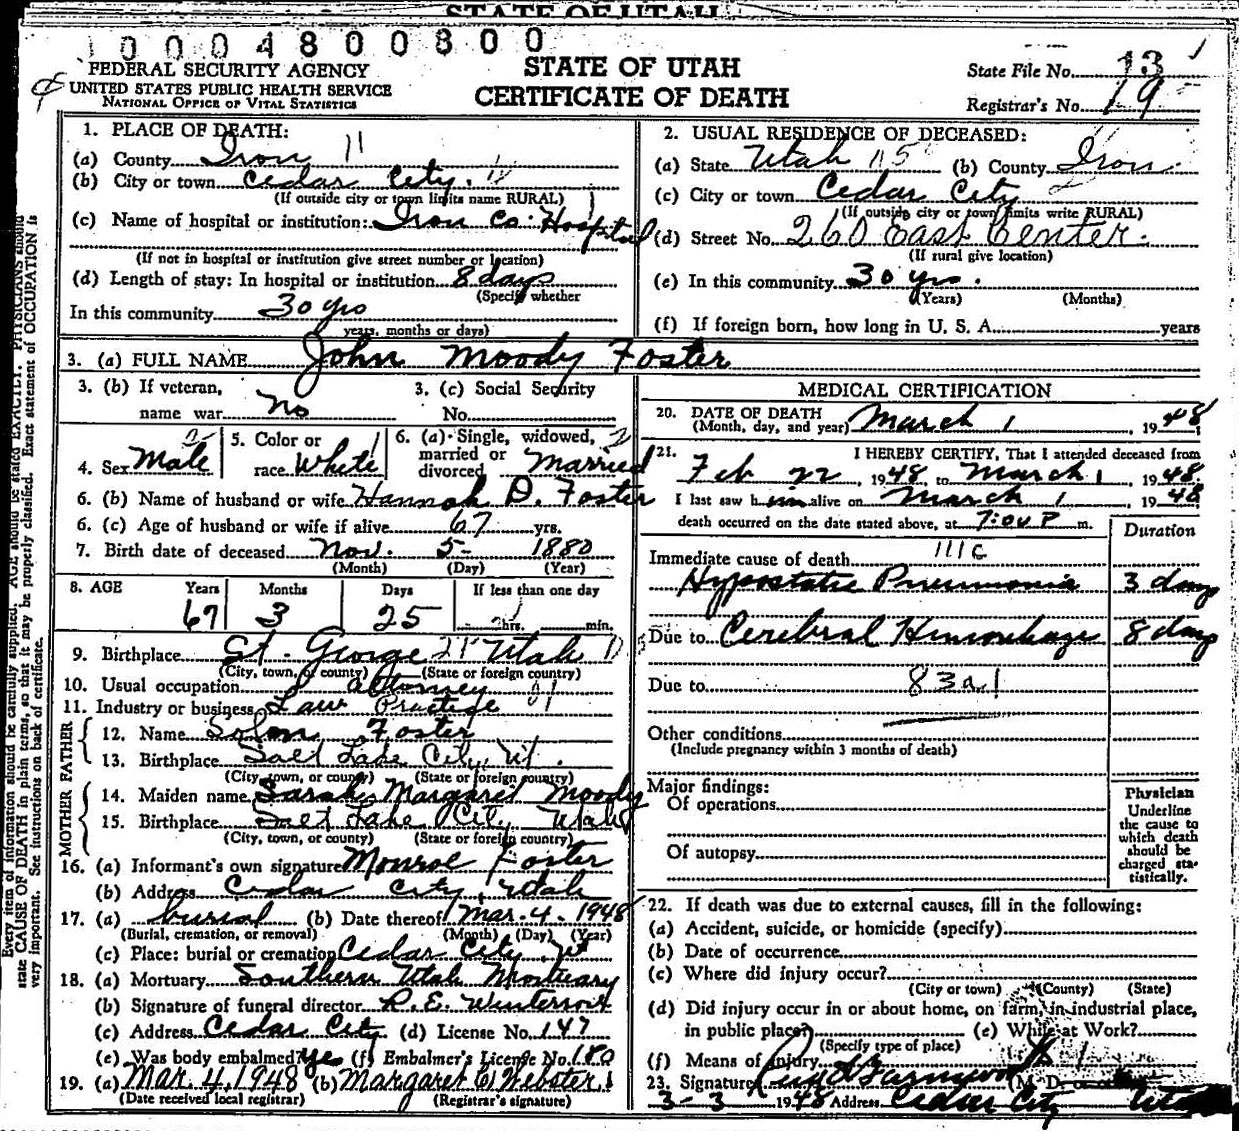 STATE OF UTAH
10004800300
FEDERAL SECURITY AGENCY
UNITED STATES PUBLIC HEALTH SERVICE
NATIONAL OFFICE OF VITAL STATISTICS
STATE OF UTAH
CERTIFICATE OF DEATH
State File No. 13
Registrar's No. 19
1. PLACE OF DEATH:
(a) County Iron 11
(b) City or town Cedar City.
(If outside city or town limits name RURAL)
(c) Name of hospital or institution: Iron Co. Hospital
(If not in hospital or institution give street number or location)
(d) Length of stay: In hospital or institution 8 days
(Specify whether
In this community 30 yrs
years, months or days)
2. USUAL RESIDENCE OF DECEASED:
(a) State Utah (b) County Iron
(c) City or town Cedar City
(If outside city or town limits write RURAL)
(d) Street No. 260 East Center.
(If rural give location)
(e) In this community 30 yrs.
(Years) (Months)
(f) If foreign born, how long in U. S. A. years
3. (a) FULL NAME John Moody Foster
3. (b) If veteran, name war No
3. (c) Social Security No.
4. Sex Male
5. Color or race White
6. (a) Single, widowed, married or divorced Married
6. (b) Name of husband or wife Hannah D. Foster
6. (c) Age of husband or wife if alive 67 yrs.
7. Birth date of deceased Nov. 5 1880
(Month) (Day) (Year)
8. AGE Years Months Days If less than one day
67 3 25 hrs. min.
9. Birthplace St. George Utah
(City, town, or county) (State or foreign country)
10. Usual occupation Attorney
11. Industry or business Law Practice
FATHER
12. Name Solon Foster
13. Birthplace Salt Lake City, Ut.
(City, town, or county) (State or foreign country)
MOTHER
14. Maiden name Sarah Margaret Moody
15. Birthplace Salt Lake City Utah
(City, town, or county) (State or foreign country)
16. (a) Informant's own signature Monroe Foster
(b) Address Cedar City, Utah
17. (a) burial (b) Date thereof Mar. 4. 1948
(Burial, cremation, or removal) (Month) (Day) (Year)
(c) Place: burial or cremation Cedar City Ut
18. (a) Mortuary Southern Utah Mortuary
(b) Signature of funeral director R. E. Winterrose
(c) Address Cedar City (d) License No. 147
(e) Was body embalmed? Yes (f) Embalmer's License No. 180
19. (a) Mar. 4, 1948 (b) Margaret C Webster
(Date received local registrar) (Registrar's signature)
MEDICAL CERTIFICATION
20. DATE OF DEATH
(Month, day, and year) March 1, 1948
21. I HEREBY CERTIFY, That I attended deceased from
Feb 22, 1948, to March 1, 1948
I last saw him alive on March 1, 1948
death occurred on the date stated above, at 7:00 P m.
Duration
Immediate cause of death 111c
Hypostatic Pneumonia 3 days
Due to Cerebral Hemorrhage 8 days
Due to 83a1
Other conditions
(Include pregnancy within 3 months of death)
Major findings:
Of operations
Of autopsy
Physician
Underline
the cause to
which death
should be
charged sta-
tistically.
22. If death was due to external causes, fill in the following:
(a) Accident, suicide, or homicide (specify)
(b) Date of occurrence
(c) Where did injury occur?
(City or town) (County) (State)
(d) Did injury occur in or about home, on farm, in industrial place,
in public place? (e) While at Work?
(Specify type of place)
(f) Means of injury
23. Signature (M. D.
3-3 1948 Address Cedar City Utah
Every item of information should be carefully supplied. AGE should be stated EXACTLY. PHYSICIANS should
state CAUSE OF DEATH in plain terms, so that it may be properly classified. Exact statement of OCCUPATION is
very important. See instructions on back of certificate.